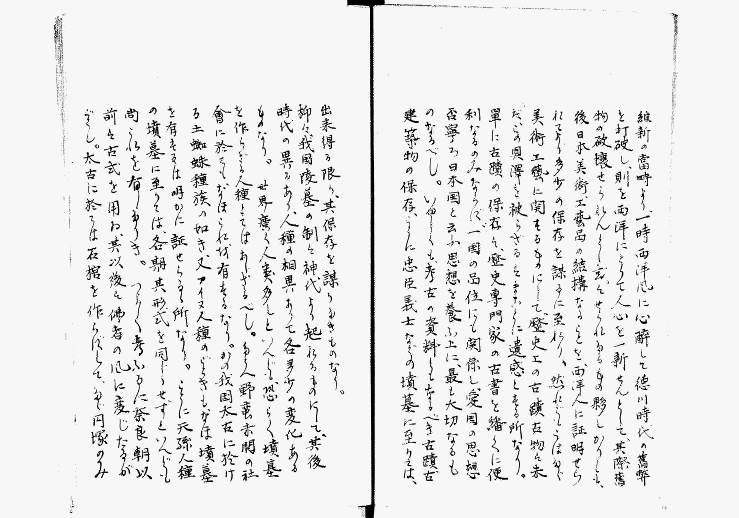 維新の當時より一時西洋風に心酔して徳川時代の舊弊
を打破し、則を西洋にとりて人心を一新せんとして、其際舊
物の破壊せられんとし、或はせられたるもの夥しかりしも、
後日本美術工藝品の結構なることを西洋人に証明せら
れてより多少の保存を謀るに至れり。然れどもこはたゞ
美術工藝に関するものにして、歴史上の古蹟古物は未
だこの奥澤を被らざるはまことに遺感とする所なり。
單に古蹟の保存は、歴史専門家の古書を繙くに便
利なるのみならず、一国の品位にも関係し、愛国の思想
否寧ろ日本国と云ふ思想を養ふ上に最も大切なるも
のなるべし。いやしくも考古の資料ともなるべき古蹟古
建築物の保存、ことに忠臣義士などの墳墓に至りては、
出来得る限り、其保存を謀るべきものなり。
抑々我国陵墓の制は神代より起れるものにして、其後
時代の異るあり、人種の相異ありて各多少の変化ある
ものなり。世界廣く人衆多しといへども恐らく墳墓
を作らざる人種とてはあらざるべし。よし人野蛮未開の社
會に於てもなほこれは有するなり。かの我国太古に於け
る土蜘蛛種族の如き又アイヌ人種のごときもなほ墳墓
を有するは明かに証せらるゝ所なり。ことに天孫人種
の墳墓に至りては各期其形式を同じうせずといへども
尚これを有しありき。つらつら考ふるに奈良朝以
前は古式を用ゐ、其以後は佛者の風に変じたるが
ごとし。太古に於ては石棺を作らずして、たゞ円塚のみ